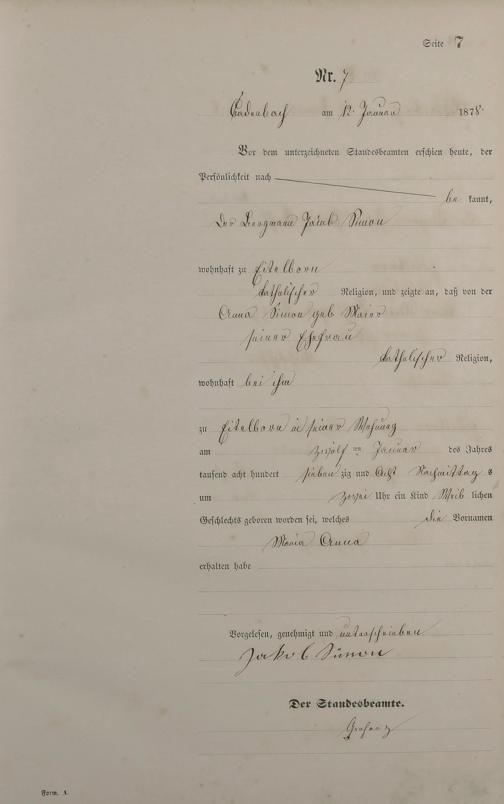 Seite 7
Nr. 7
Cadenbach am 12. Januar 1878.
Vor dem unterzeichneten Standesbeamten erschien heute, der
Persönlichkeit nach
be kannt,
der Bergmann Jacob Simon
wohnhaft zu Eitelborn
katholischer Religion, und zeigte an, daß von der
Anna Simon geb Maier
seiner Ehefrau
katholischer Religion,
wohnhaft bei ihm
zu Eitelborn in seiner Wohnung
am zwölf ten Januar des Jahres
tausend acht hundert sieben zig und acht Nachmittag s
um zwei Uhr ein Kind Weib lichen
Geschlechts geboren worden sei, welches die Vornamen
Maria Anna
erhalten habe
Vorgelesen, genehmigt und unterschrieben
Jakob Simon
Der Standesbeamte.
Form. A.